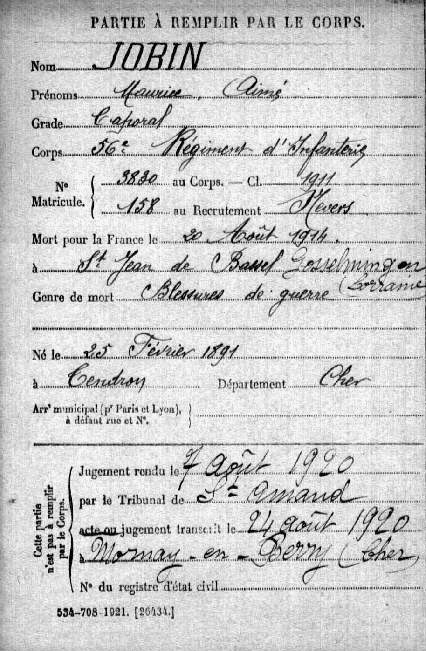 PARTIE À REMPLIR PAR LE CORPS.
Nom JOBIN
Prénoms Maurice, Aimé
Grade Caporal
Corps 56e Régiment d'Infanterie
No Matricule. { 3830 au Corps. — Cl. 1911
158 au Recrutement Nevers
Mort pour la France le 20 Août 1914
à St Jean de Bassel Gosselmingen
(Lorraine
Genre de mort Blessures de guerre
Né le 25 Février 1891
à Tendron Département Cher
Arrt municipal (pr Paris et Lyon), }
à défaut rue et No.
Cette partie n'est pas à remplir par le Corps.
Jugement rendu le 7 Août 1920
par le Tribunal de St Amand
acte ou jugement transcrit le 24 août 1920
à Mornay-en-Berry (Cher)
No du registre d'état civil
534-708-1921. [26434.]